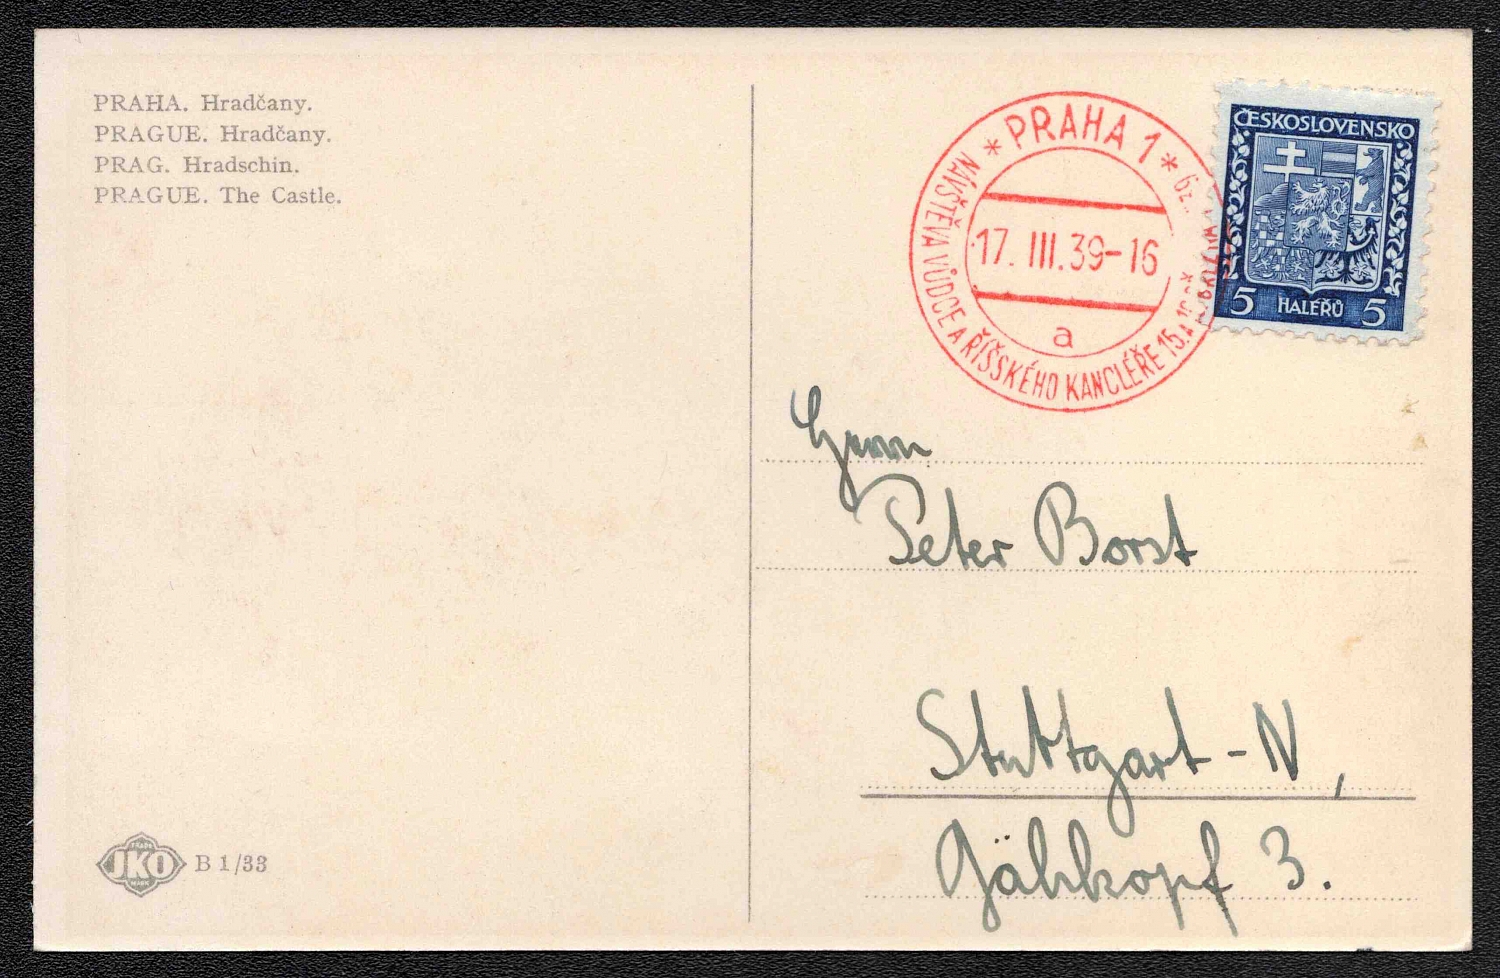 PRAHA. Hradčany.
PRAGUE. Hradčany.
PRAG. Hradschin.
PRAGUE. The Castle.
* PRAHA 1 *
NÁVŠTĚVA VŮDCE A ŘÍŠSKÉHO KANCLÉŘE 15. A
17. III. 39-16
a
ČESKOSLOVENSKO
5 HALÉŘŮ 5
Herrn
Peter Borst
Stuttgart-N,
Gähkopf 3.
TRADE
JKO
MARK
B 1/33